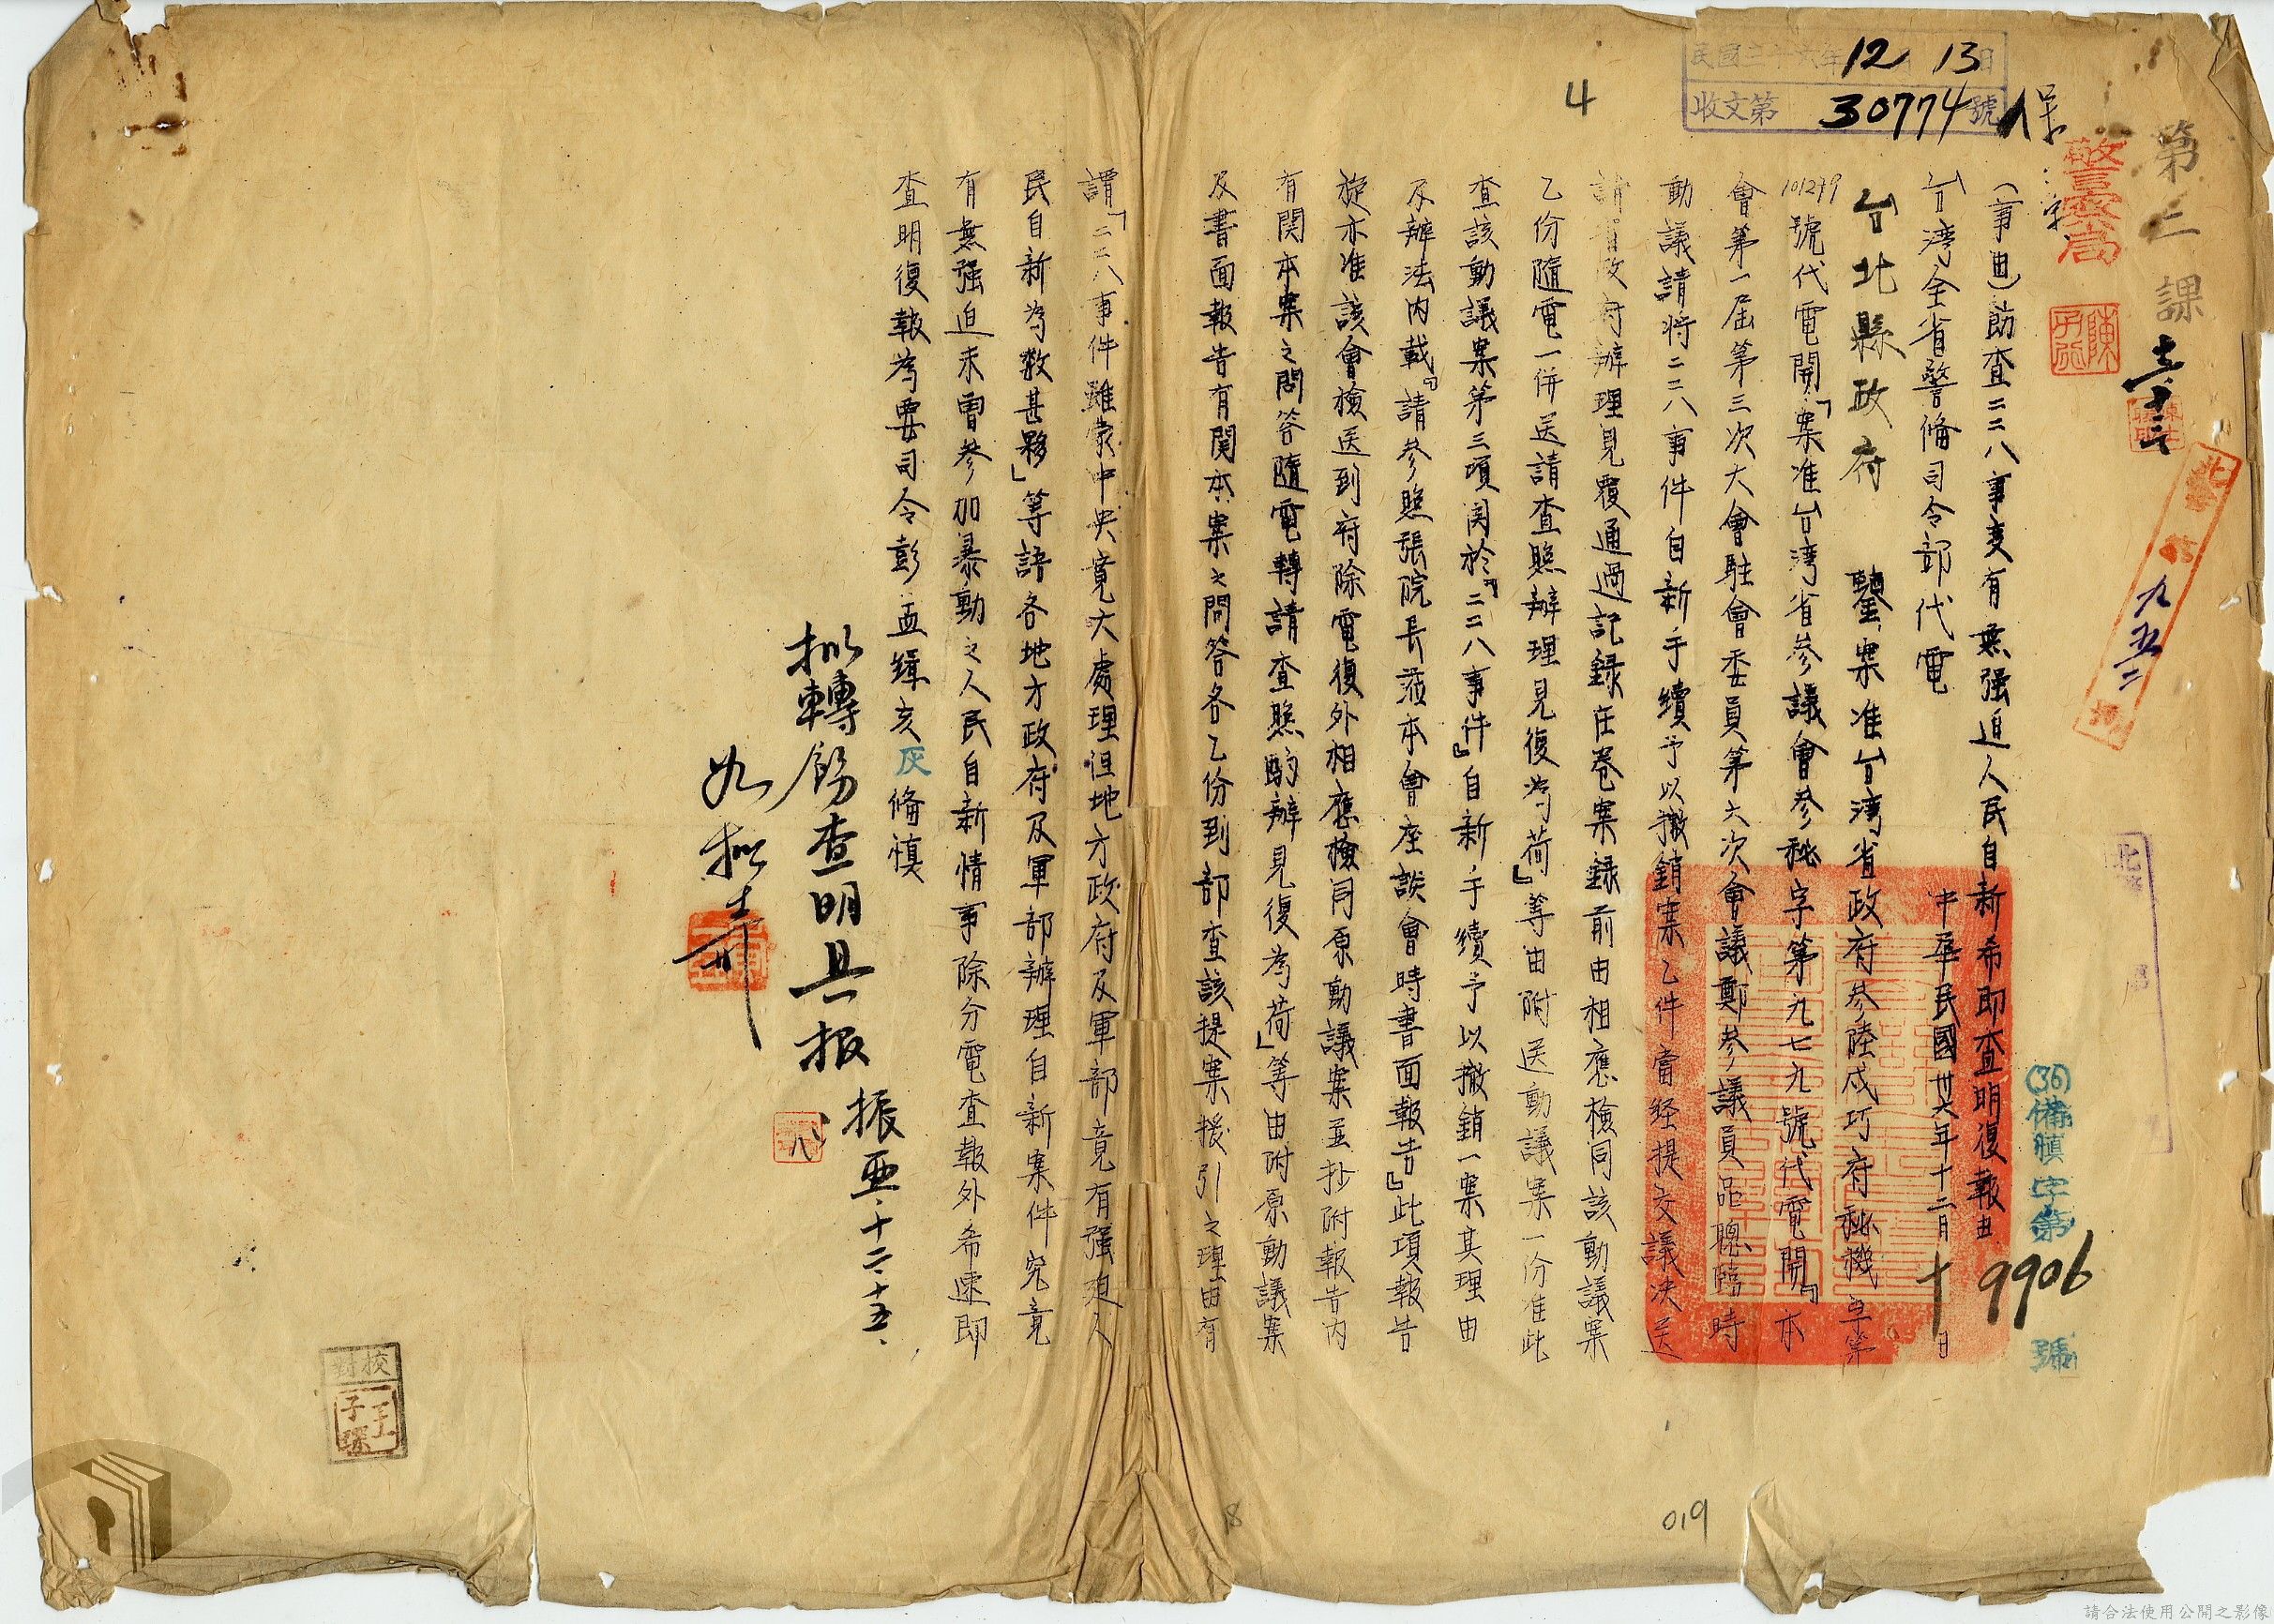 民國三十六年12月13日
收文第30774號
4
保
第二課
警察局
九五二
(36)備慎字第9906號
(事由)飭查二二八事变有無强迫人民自新希即查明復報由
台湾全省警備司令部代電
中華民國卅六年十二月十日
台北縣政府 鑒案准台湾省政府參陸戍巧府秘機字第
101279號代電開「案准台湾省參議會參秘字第九七九號代電開『本
會第一届第三次大會駐會委員第六次會議鄭參議員品聰臨時
動議請將二二八事件自新手續予以撤銷案乙件當经提交議决送
請省政府辦理見覆通過記録在卷案録前由相應檢同該動議案
乙份隨電一併送請查照辦理見復為荷』等由附送動議案一份准此
查該動議案第三項関於『二二八事件』自新手续予以撤銷一案其理由
及辦法内載『請參照張院長蒞本會座談會時書面報告』此項報告
旋亦准該會檢送到府除電復外相應檢同原動議案並抄附報告内
有関本案之問答隨電轉請查照酌辦見復為荷」等由附原動議案
及書面報告有関本案之問答各乙份到部查該提案援引之理由有
謂「二二八事件雖蒙中央寬大處理但地方政府及軍部竟有强迫人
民自新為数甚夥」等語各地方政府及軍部辦理自新案件究竟
有無强迫未曾參加暴動之人民自新情事除分電查報外希速即
查明復報為要司令彭孟緝亥灰備慎
拟轉飭查明具报
振亜.十二.十五.
如拟
校對
王子琛
8
019
請合法使用公開之影像